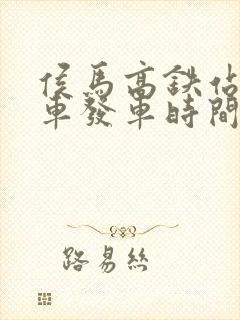 侯馬高鉄佔
車發車時間
路易絲